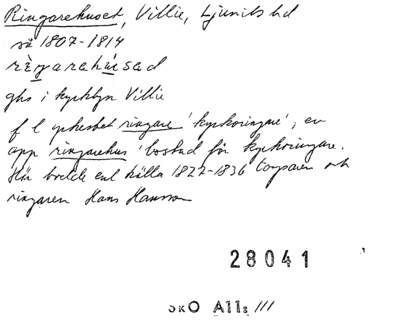 Ringarehuset, Villie, Ljunits hd
så 1807-1814
ghs i kyrkbyn Villie
f l yrkesbet ringare 'kyrkoringare', ev
app ringarehus 'bostad för kyrkoringare.
Här bodde enl källa 1822-1836 torparen och
ringaren Hans Hansson
28041
SkO A11s ///